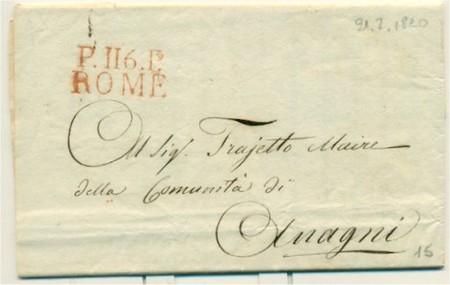 21.7.1810
P.116.P.
ROME
Al Sig.r Trajetto Maire
della Comunità di
Anagni
15